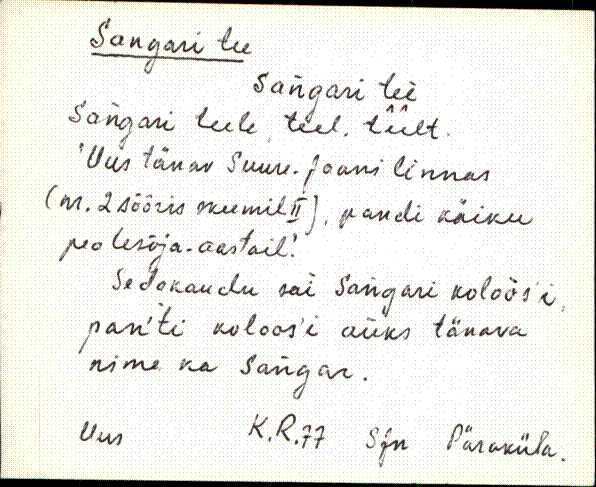 Sangari tee
Sańgari teè
Sańgari teele, teel, têêlt.
'Uus tänav Suure-Jaani linnas
(nr. 2 sõõris skeemil II), pandi käiku
peale sõja-aastail.'
Sedakaudu sai Sańgari koloòs'i,
pan'ti koloos'i aùks tänava
nime ka Sańgar.
Uus K.R. 77 SJn Päraküla.